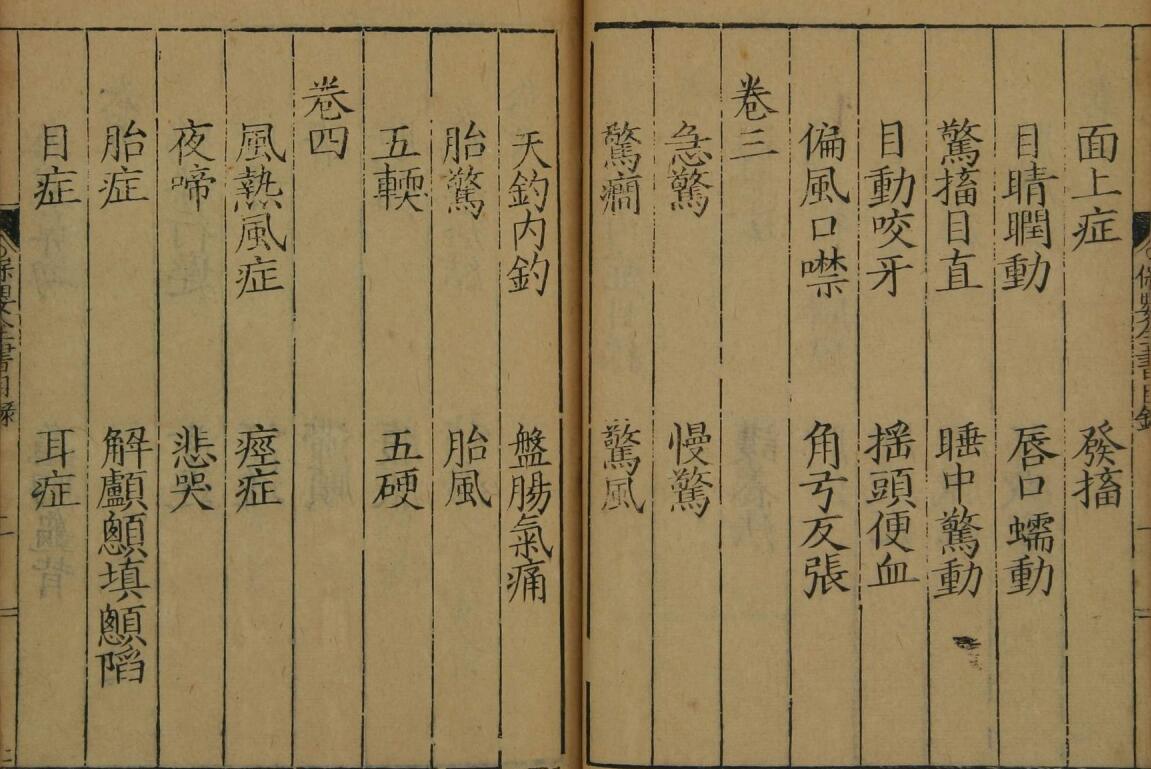 面上症　發搐
目睛瞤動　唇口蠕動
驚搐目直　睡中驚動
目動咬牙　揺頭便血
偏風口噤　角弓反張
卷三
急驚　慢驚
驚癇　驚風
天釣内釣　盤腸氣痛
胎驚　胎風
五輭　五硬
卷四
風熱風症　痙症
夜啼　悲哭
胎症　解顱顖填顖陷
目症　耳症
保嬰全書目錄　二